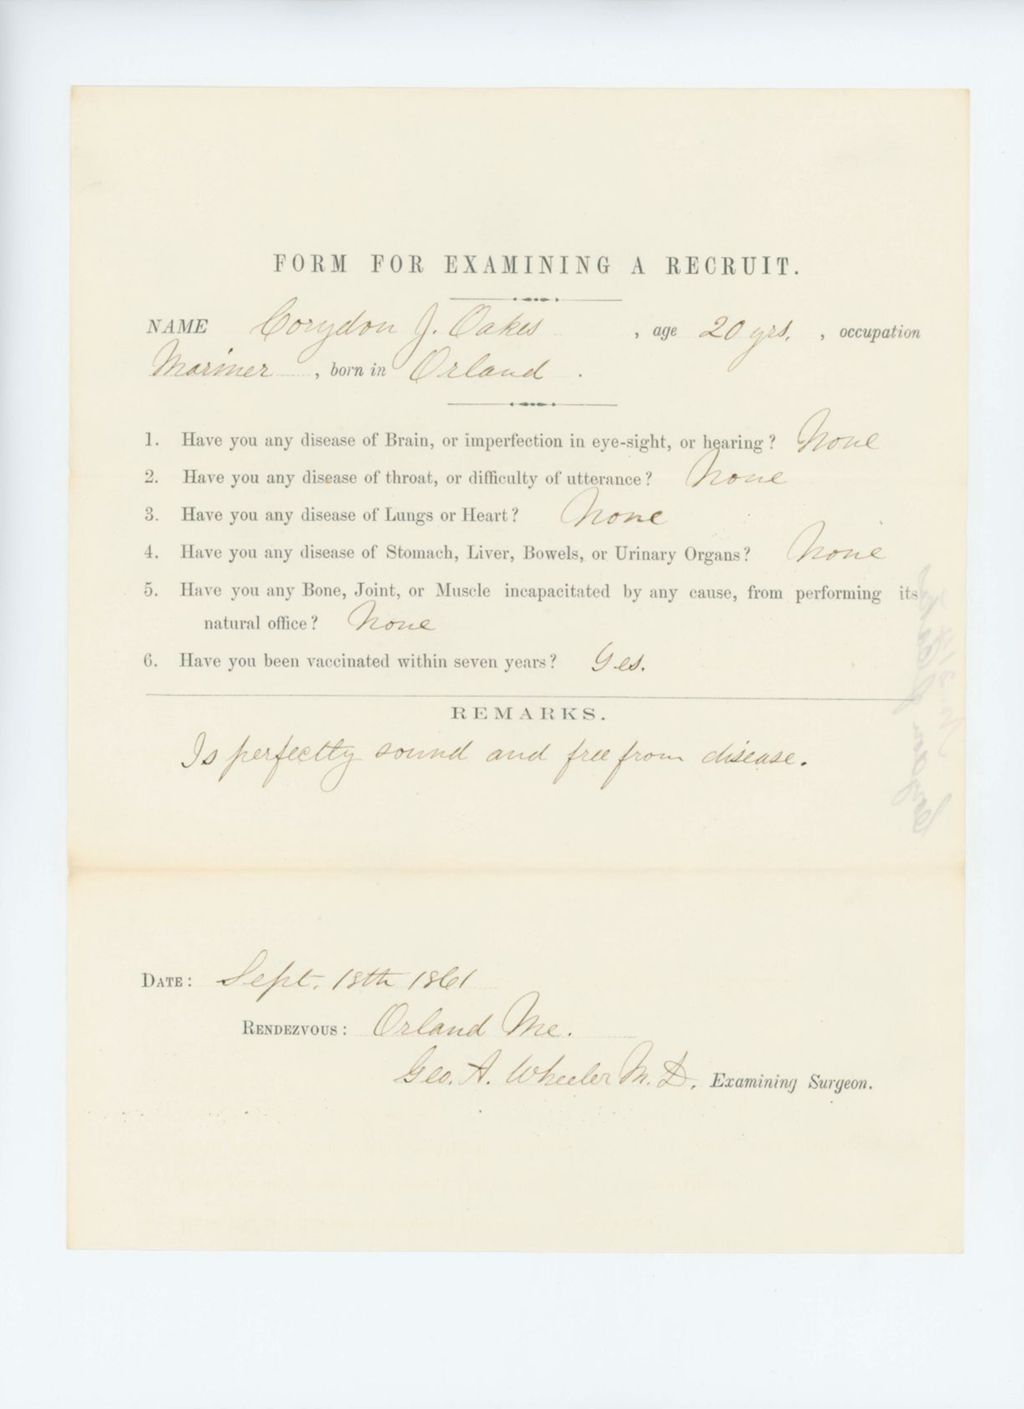 FORM FOR EXAMINING A RECRUIT.
NAME Corydon J. Oakes , age 20 yrs. , occupation
Mariner , born in Orland .
1. Have you any disease of Brain, or imperfection in eye-sight, or hearing? None
2. Have you any disease of throat, or difficulty of utterance? None
3. Have you any disease of Lungs or Heart? None
4. Have you any disease of Stomach, Liver, Bowels, or Urinary Organs? None
5. Have you any Bone, Joint, or Muscle incapacitated by any cause, from performing its
natural office? None
6. Have you been vaccinated within seven years? Yes.
REMARKS.
Is perfectly sound and free from disease.
DATE: Sept. 18th 1861
RENDEZVOUS: Orland Me.
Geo. A. Wheeler M. D. Examining Surgeon.